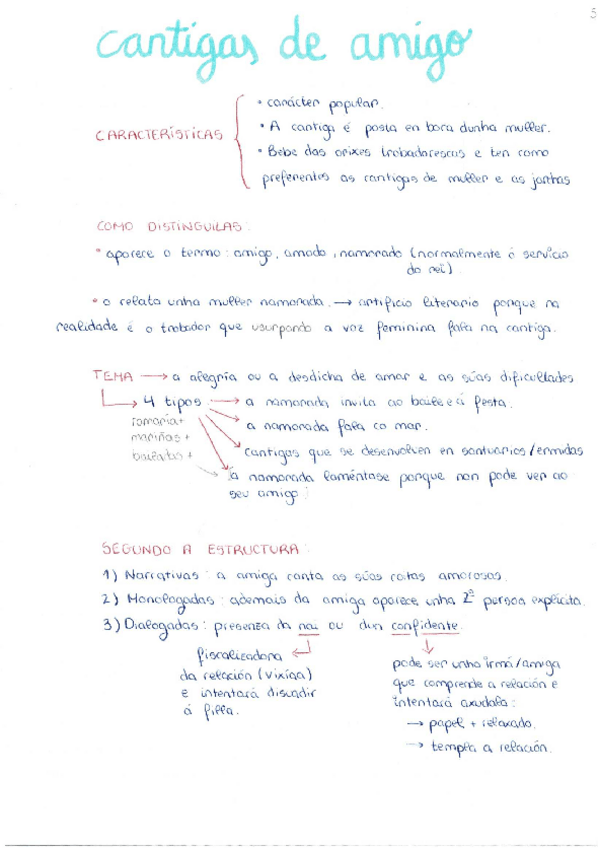 5
cantigas de amigo
• carácter popular.
CARACTERÍSTICAS
• A cantiga é posta en boca dunha muller.
• Bebe das orixes trobadorescas e ten como
preferentes as cantigas de muller e as jarchas
COMO DISTINGUILAS:
• aparece o termo: amigo, amado, namorado (normalmente ó servicio
do rei)
• o relata unha muller namorada. → artificio literario porque na
realidade é o trobador que usurpando a voz feminina fala na cantiga.
TEMA → a alegría ou a desdicha de amar e as súas dificultades
4 tipos → a namorada invita ao baile e á festa.
romaría +
→ a namorada fala co mar.
mariñas +
→ cantigas que se desenvolven en santuarios/ermidas
bailadas +
→ a namorada laméntase porque non pode ver ao
seu amigo.
SEGUNDO A ESTRUCTURA:
1) Narrativas: a amiga canta as súas coitas amorosas.
2) Monologadas: ademais da amiga aparece unha 2ª persoa explícita.
3) Dialogadas: presenza da nai ou dun confidente.
fiscalizadora
da relación (vixía)
e intentará disuadir
á filla.
pode ser unha irmá/amiga
que comprende a relación e
intentará axudala:
→ papel + relaxado.
→ templa a relación.